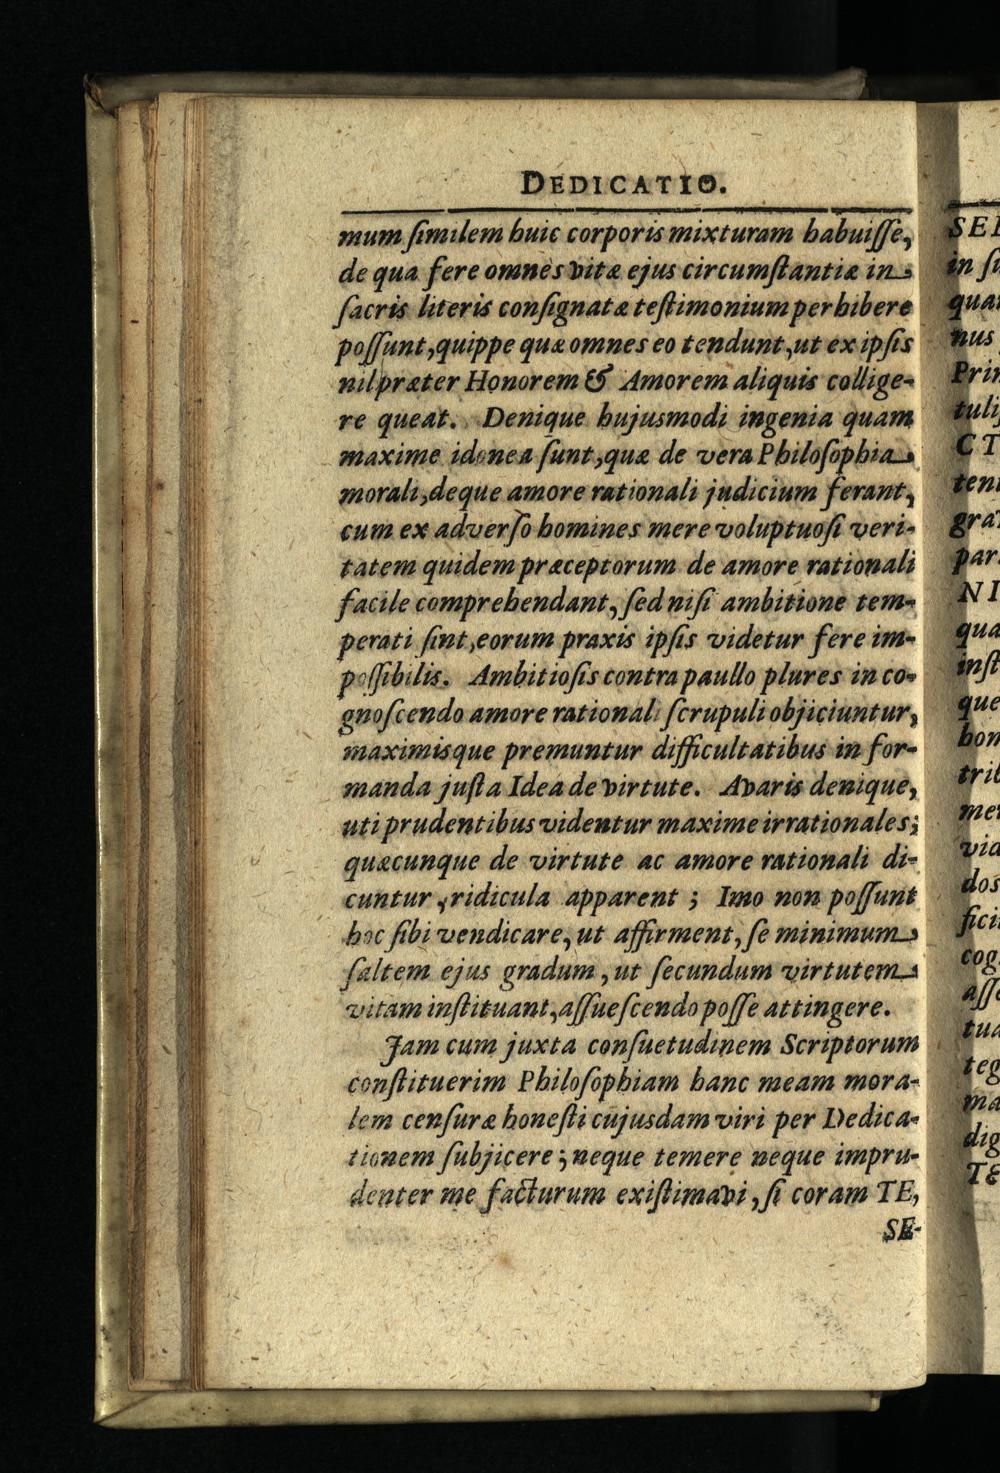 DEDICATIO.
mum ſimilem huic corporis mixturam habuiſſe,
de qua fere omnes vitæ ejus circumſtantiæ in
ſacris literis conſignatæ teſtimonium perhibere
poſſunt, quippe quæ omnes eo tendunt, ut ex ipſis
nil præter Honorem & Amorem aliquis collige-
re queat. Denique hujusmodi ingenia quam
maxime idonea ſunt, quæ de vera Philoſophia
morali, deque amore rationali judicium ferant,
cum ex adverſo homines mere voluptuoſi veri-
tatem quidem præceptorum de amore rationali
facile comprehendant, ſed niſi ambitione tem-
perati ſint, eorum praxis ipſis videtur fere im-
poſſibilis. Ambitioſis contra paullo plures in co-
gnoſcendo amore rationali ſcrupuli objiciuntur,
maximisque premuntur difficultatibus in for-
manda juſta Idea de virtute. Avaris denique,
uti prudentibus videntur maxime irrationales;
quæcunque de virtute ac amore rationali di-
cuntur, ridicula apparent; Imo non poſſunt
hoc ſibi vendicare, ut affirment, ſe minimum
ſaltem ejus gradum, ut ſecundum virtutem
vitam inſtituant, aſſueſcendo poſſe attingere.
Jam cum juxta conſuetudinem Scriptorum
conſtituerim Philoſophiam hanc meam mora-
lem cenſuræ honeſti cujusdam viri per Dedica-
tionem ſubjicere; neque temere neque impru-
denter me facturum exiſtimavi, ſi coram TE,
SE-
SEI
in ſi
quar
nus
Prin
tuliſ
CT
tent
grat
par
NI
qua
inſt
que
hon
trib
mer
via
dos
ficii
cog
aſſe
tua
teg
ma
dig
TE